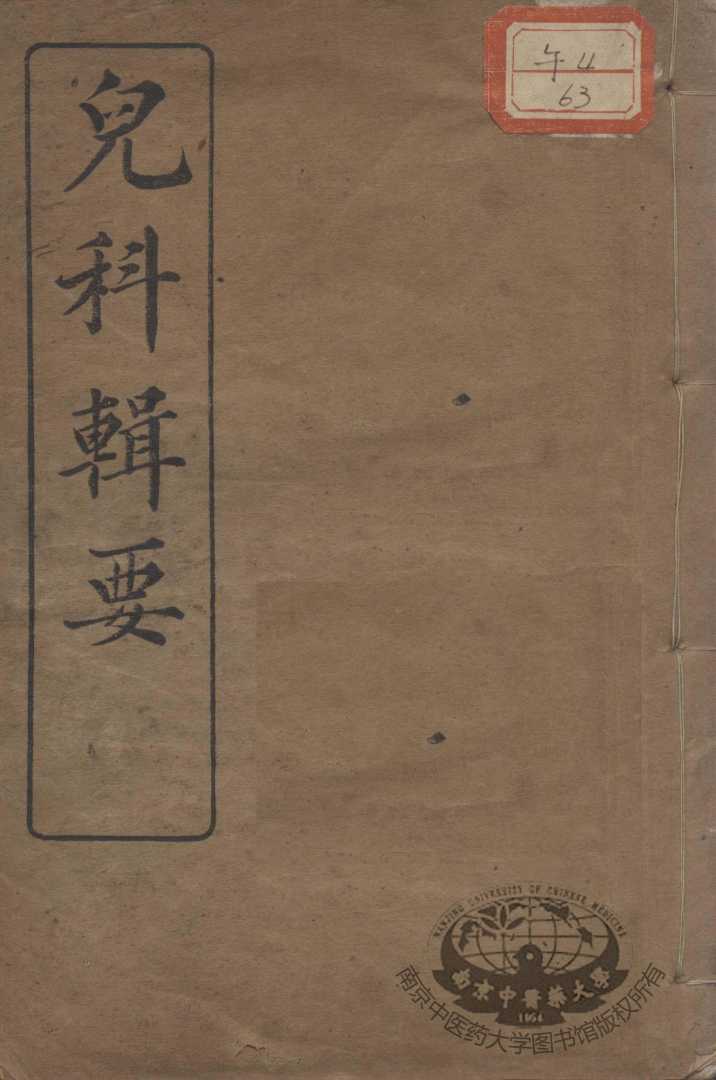 兒科輯要
午4
63
NANJING UNIVERSITY OF CHINESE MEDICINE
南京中醫藥大學
1954
南京中医药大学图书馆版权所有